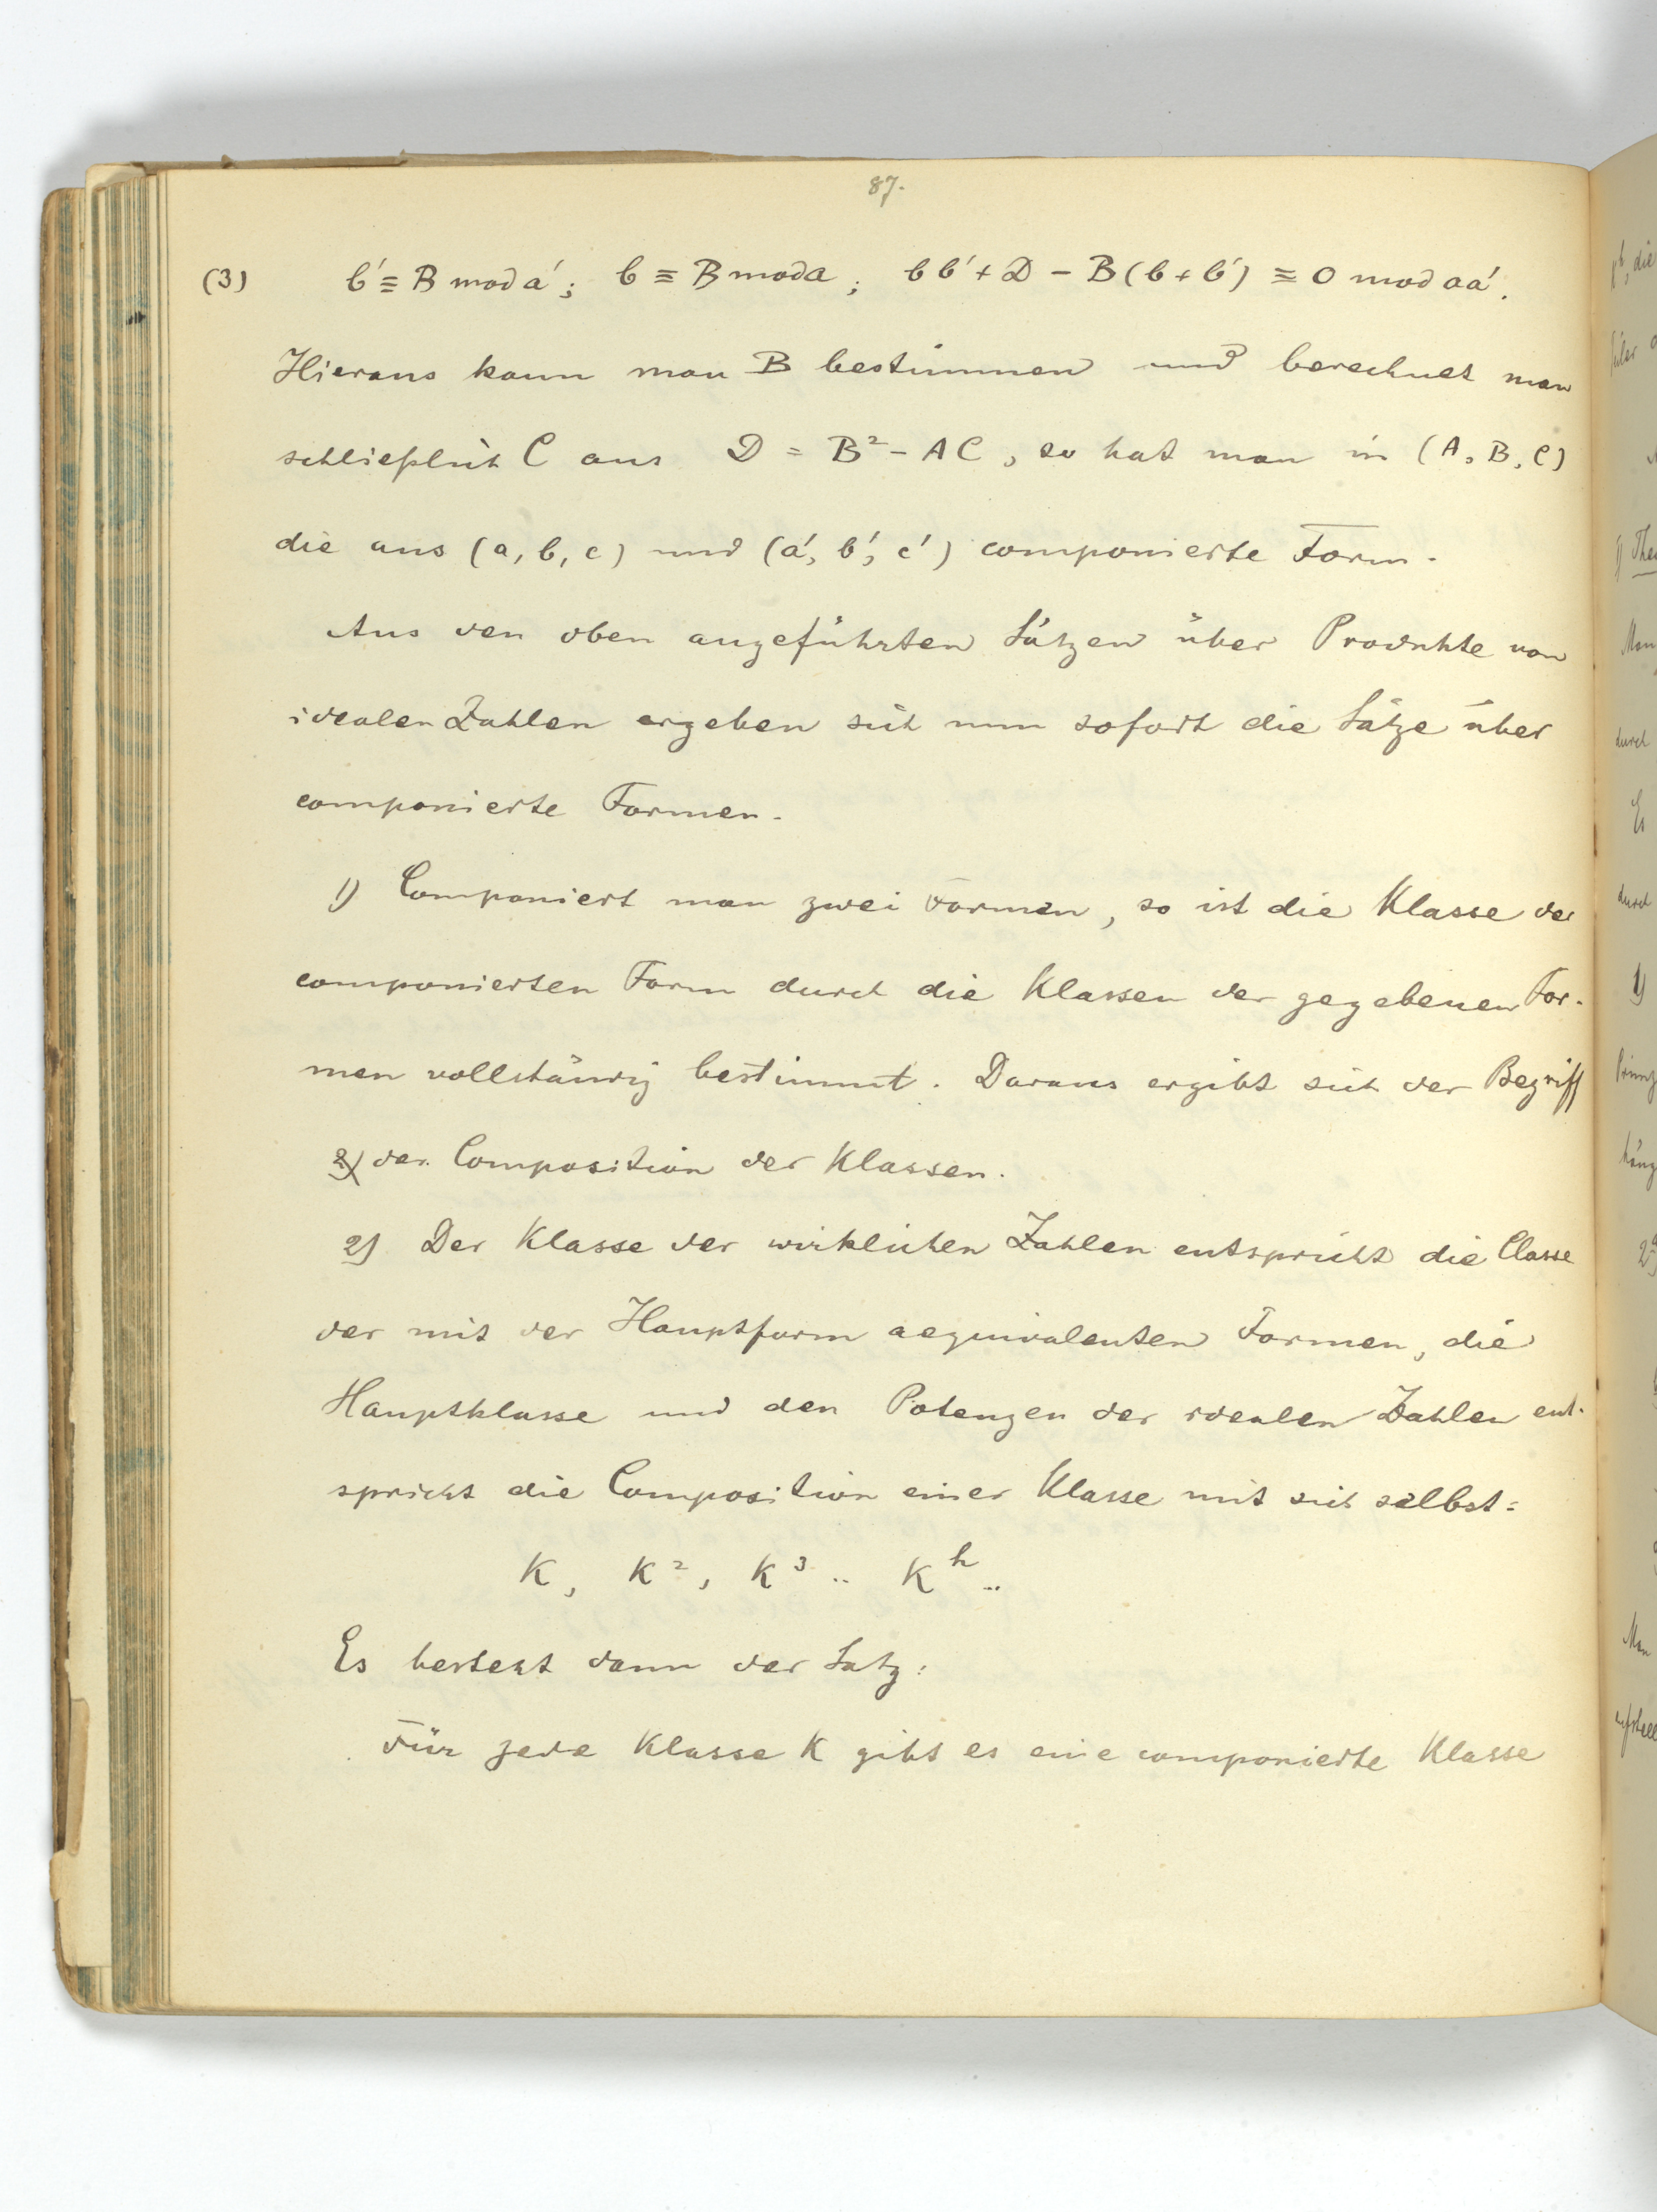 87.
(3) b' ≡ B mod a'; b ≡ B mod a; bb' + D - B(b + b') ≡ 0 mod aa'.
Hieraus kann man B bestimmen und berechnet man
schließlich C aus D = B² - AC, so hat man in (A, B, C)
die aus (a, b, c) und (a', b', c') componierte Form.
Aus den oben angeführten Sätzen über Produkte von
idealen Zahlen ergeben sich nun sofort die Sätze über
componierte Formen.
1) Componiert man zwei Formen, so ist die Klasse der
componierten Form durch die Klassen der gegebenen For-
men vollständig bestimmt. Daraus ergibt sich der Begriff
2) der Composition der Klassen.
2) Der Klasse der wirklichen Zahlen entspricht die Classe
der mit der Hauptform aequivalenten Formen, die
Hauptklasse und den Potenzen der idealen Zahlen ent-
spricht die Composition einer Klasse mit sich selbst:
K, K², K³ .. Kʰ ..
Es besteht dann der Satz:
Für jede Klasse K gibt es eine componierte Klasse
die
1)
Man
durch
Es
durch
1)